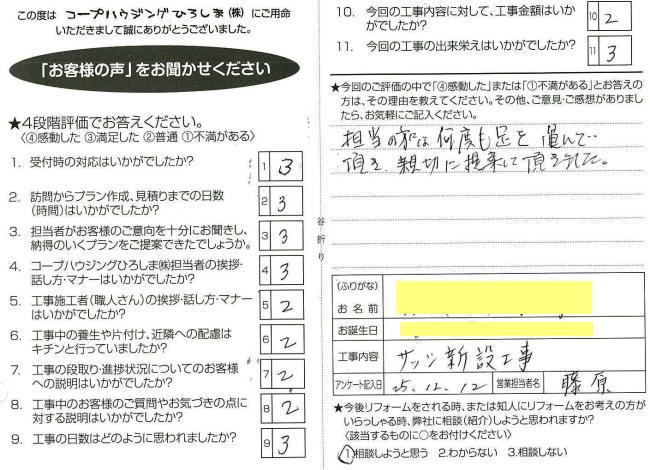 この度は コープハウジングひろしま(株) にご用命
いただきまして誠にありがとうございました。
「お客様の声」をお聞かせください
★4段階評価でお答えください。
〈④感動した ③満足した ②普通 ①不満がある〉
1. 受付時の対応はいかがでしたか?
1 3
2. 訪問からプラン作成、見積りまでの日数
(時間)はいかがでしたか?
2 3
3. 担当者がお客様のご意向を十分にお聞きし、
納得のいくプランをご提案できたでしょうか。
3 3
4. コープハウジングひろしま㈱担当者の挨拶・
話し方・マナーはいかがでしたか?
4 3
5. 工事施工者(職人さん)の挨拶・話し方・マナー
はいかがでしたか?
5 2
6. 工事中の養生や片付け、近隣への配慮は
キチンと行っていましたか?
6 2
7. 工事の段取り・進捗状況についてのお客様
への説明はいかがでしたか?
7 2
8. 工事中のお客様のご質問やお気づきの点に
対する説明はいかがでしたか?
8 2
9. 工事の日数はどのように思われましたか?
9 3
谷折り
10. 今回の工事内容に対して、工事金額はいか
がでしたか?
10 2
11. 今回の工事の出来栄えはいかがでしたか?
11 3
★今回のご評価の中で「④感動した」または「①不満がある」とお答えの
方は、その理由を教えてください。その他、ご意見・ご感想がありました
ら、お気軽にご記入ください。
担当の方は何度も足を運んで
頂き、親切に提案して頂きました。
(ふりがな)
お名前
お誕生日
工事内容 サッシ新設工事
アンケート記入日 25.12.12 営業担当者名 藤原
★今後リフォームをされる時、または知人にリフォームをお考えの方が
いらっしゃる時、弊社に相談(紹介)しようと思われますか?
〈該当するものに○をお付けください〉
1.相談しようと思う 2.わからない 3.相談しない